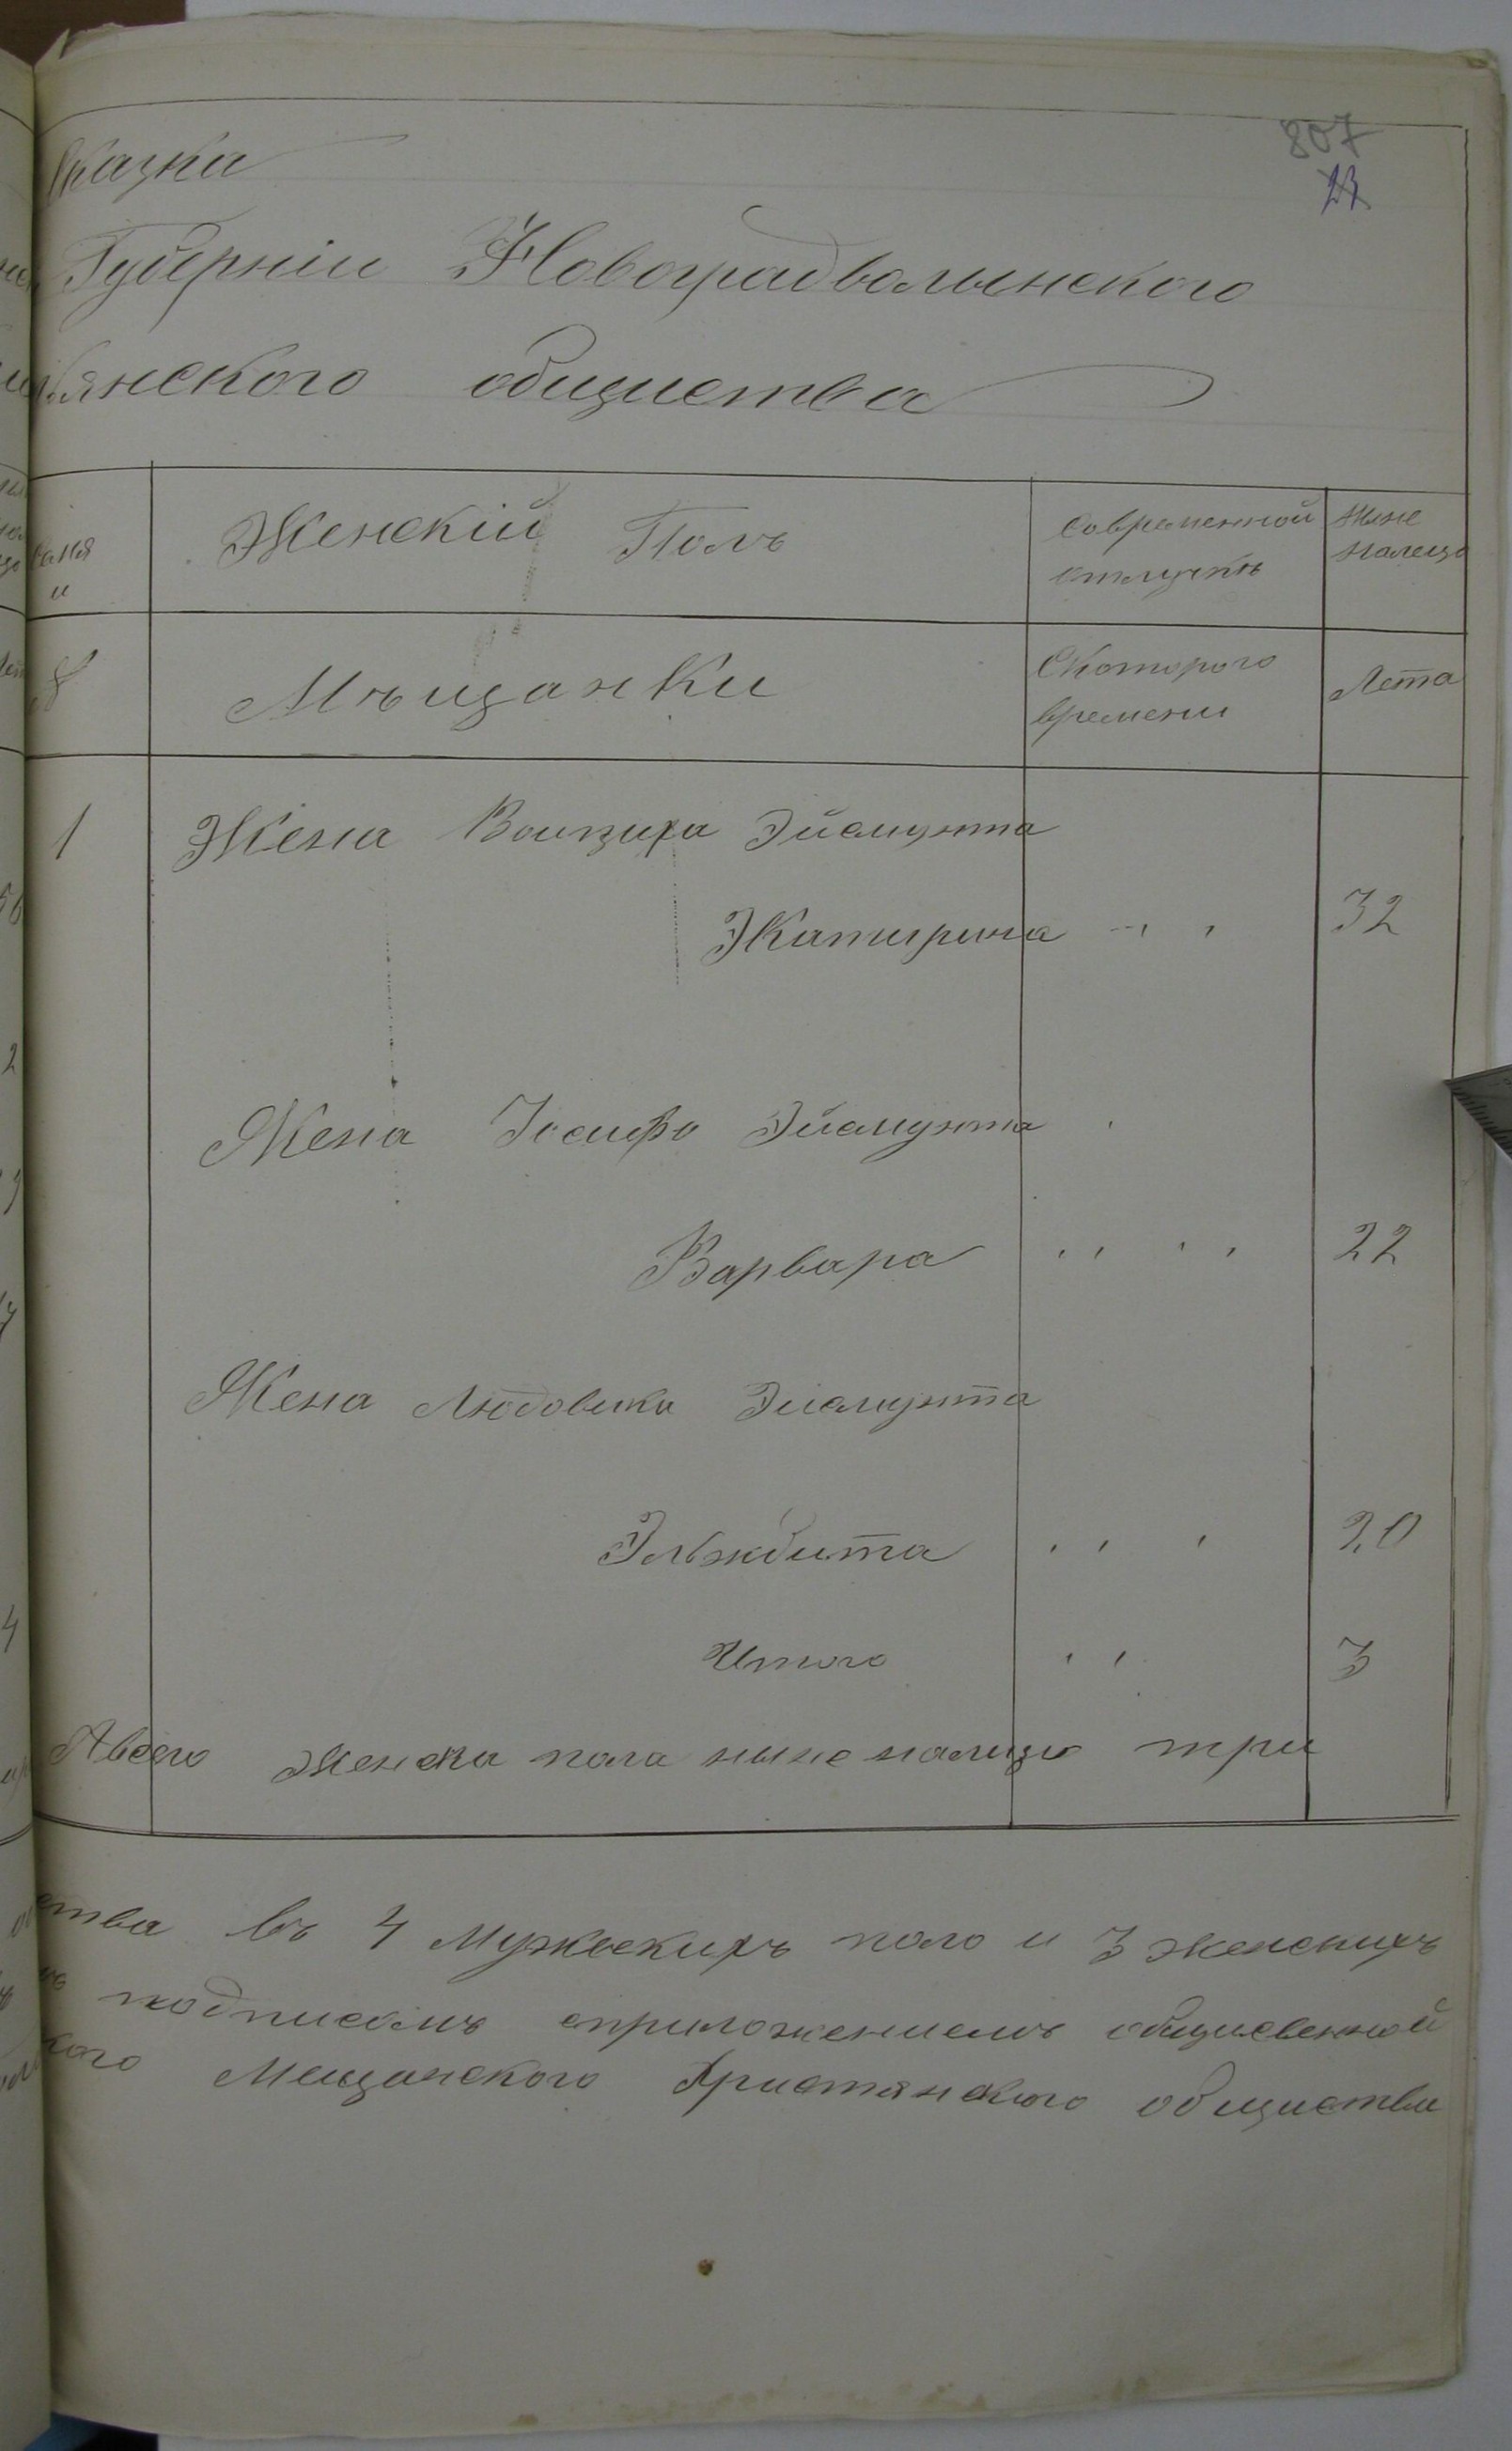 807
23
Сказка
Губерніи Новоградволынского
янского общиства
Женскій Полъ
Современной отлучки
Ныне налецо
Мѣщанки
Скоторого времени
Лета
1 Жена Воицеха Эйсмунта
Экатирина 32
Жена Іосифа Эйсмунта
Варвара 22
Жена Людовика Эисмунта
Эльжбита 20
Итого 3
Авсего женска пола ныне налицо три
ства въ 4 Мужескихъ поло и 3 женскихъ
подписомъ сприложениемъ общисвенной
кого Мещанского Христянского общиства